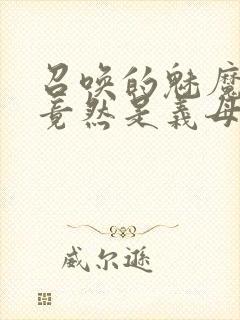 召唤的魅魔
竟然是义母
威尔逊